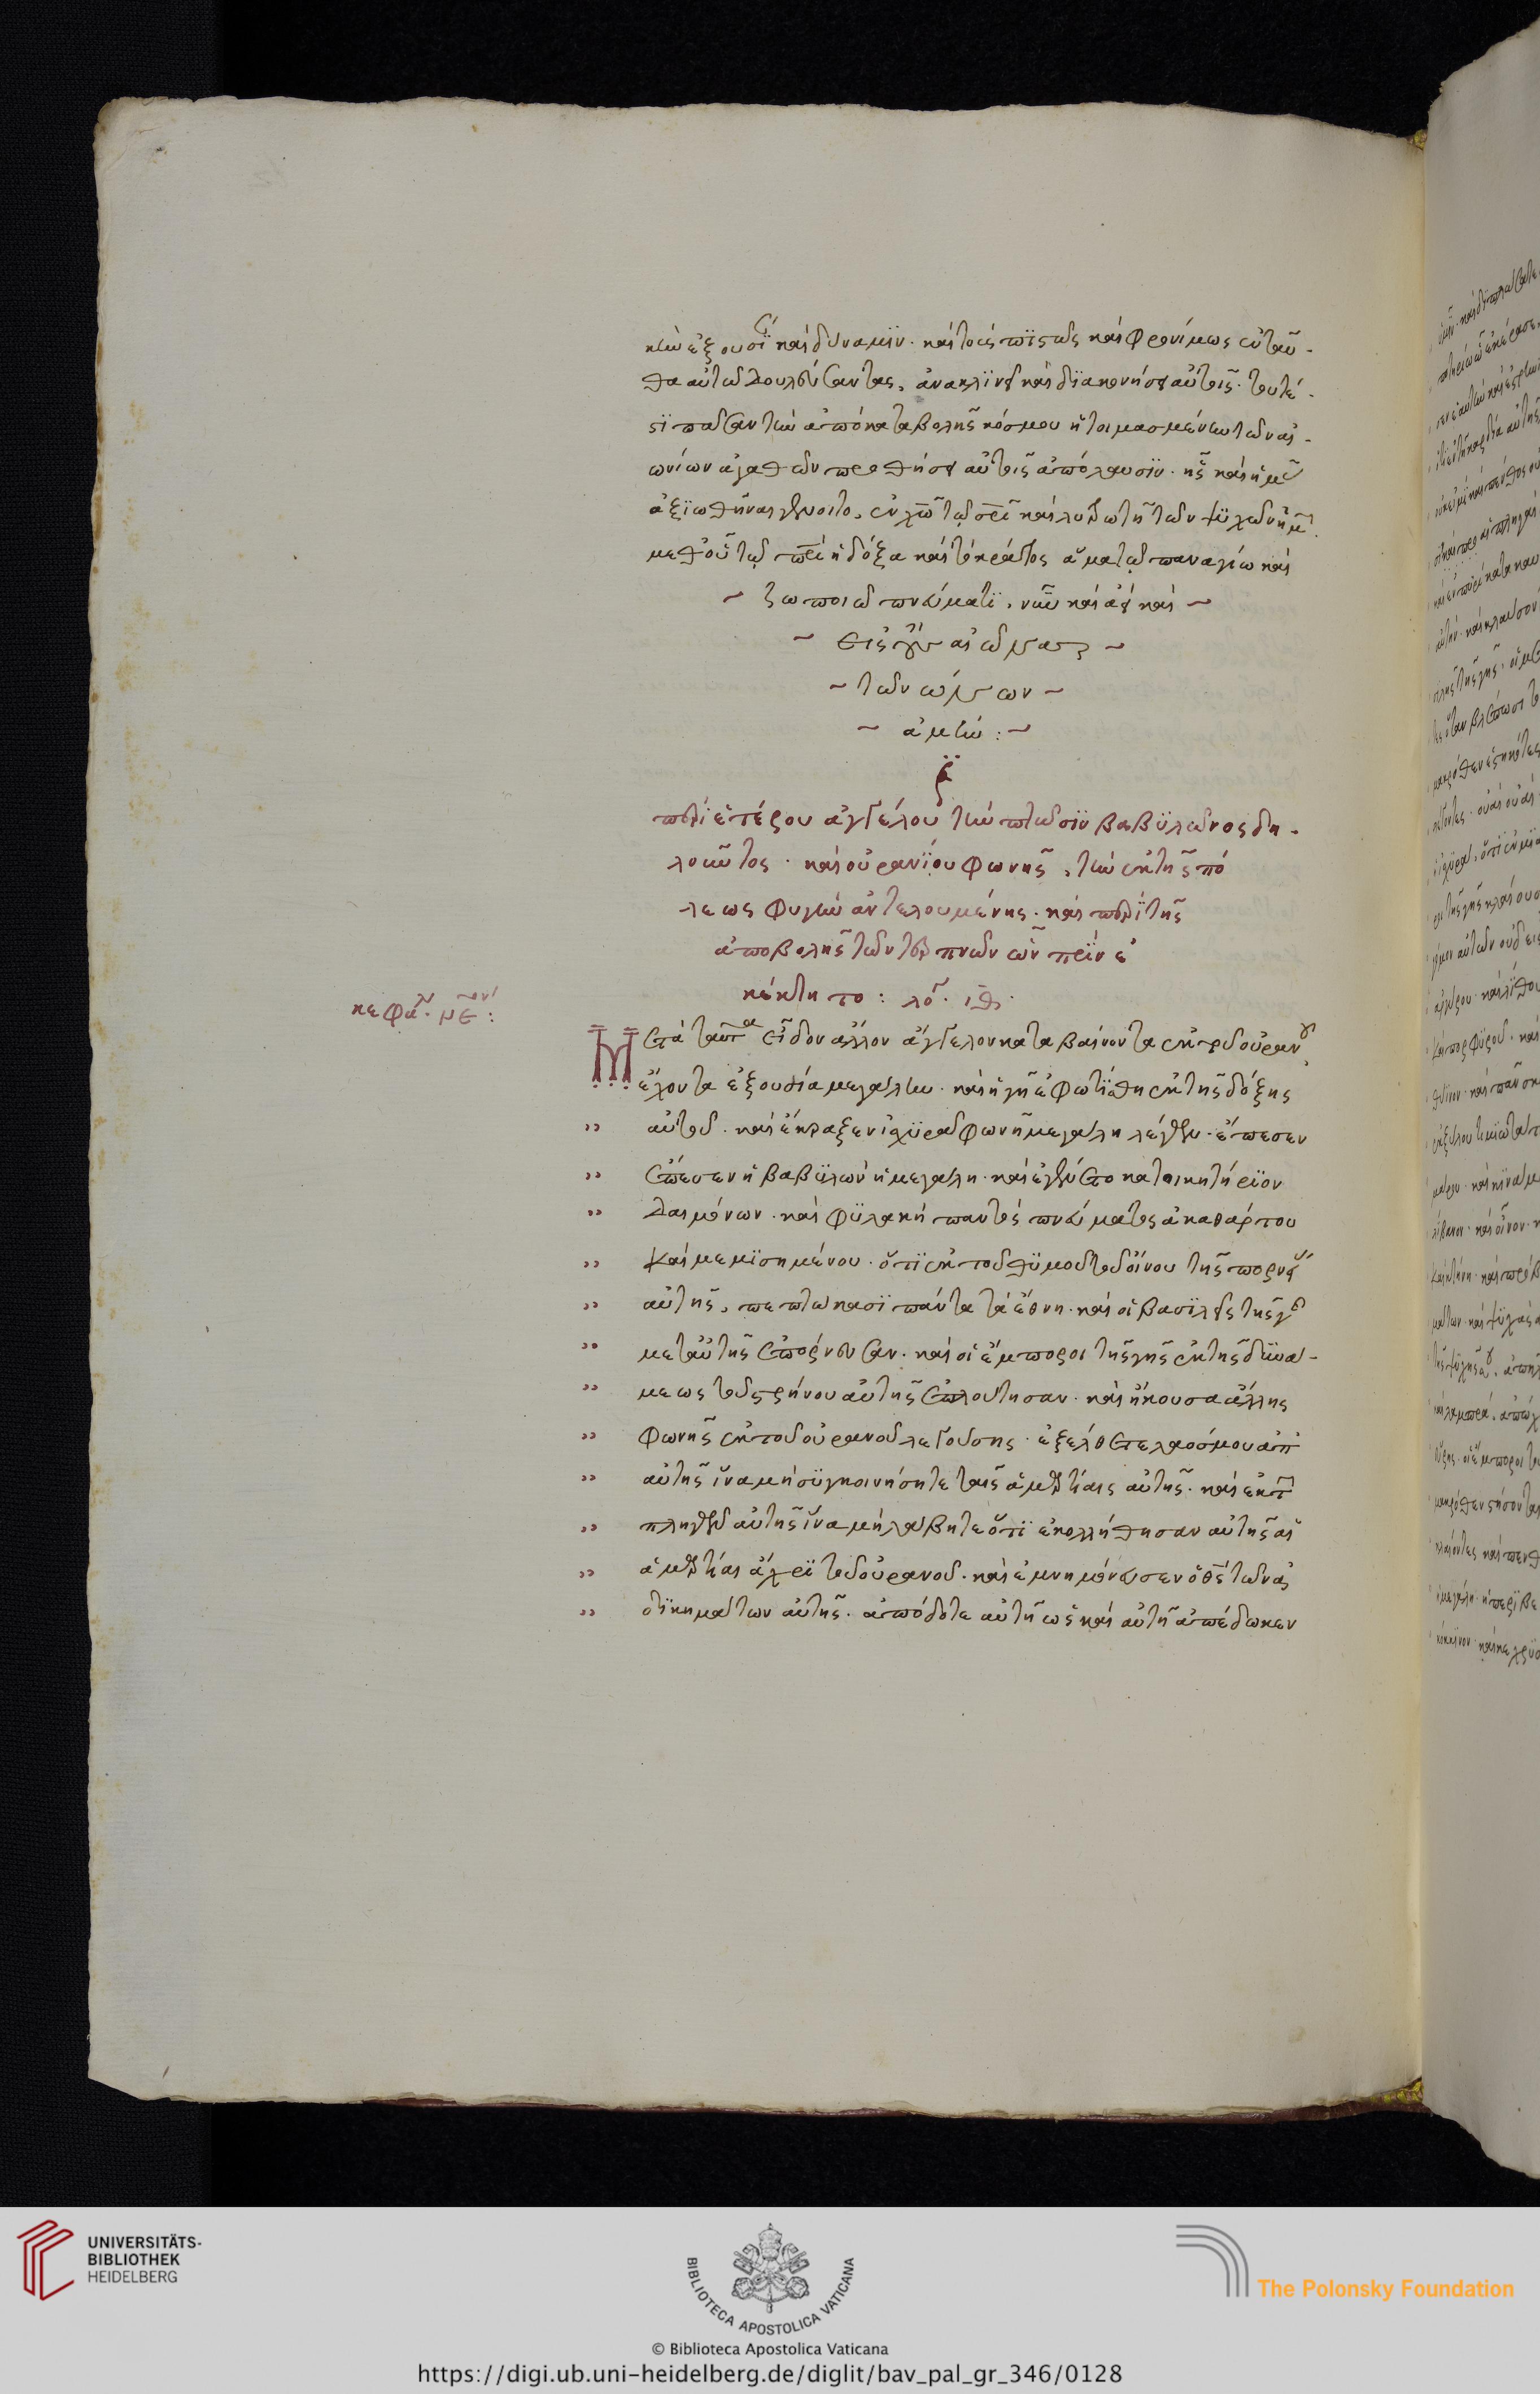 κὴν ἐξουσίαν καὶ δύναμϊν · καὶ τοὺς πϊστῶς καὶ φρονίμως ἐνταῦ-
θα αὐτῶ δουλεύσαντας, ἀνακλϊνεῖ καὶ δϊακονήσει αὐτοῖς · τουτέ-
στϊ πασῶν τῶν ἀπὸ καταβολῆς κόσμου ἡτοιμασμένων τῶν αἰ-
ωνίων ἀγαθῶν προθήσει αὐτοῖς ἀπόλαυσϊν · ἧς καὶ ἡμᾶς
ἀξϊωθῆναι γένοιτο, ἐν χῶ τῶ σρϊ καὶ λυτρωτῆ τῶν ψϋχῶν ἡμῶν
μεθ' οὗ τῶ πρϊ ἡ δόξα καὶ τὸ κράτος ἅμα τῶ παναγίω καὶ
~ ζωποιῶ πνεύματϊ, νῦν καὶ ἀεὶ καὶ ~
~ εἰς τοὺς αἰῶνας ~
~ τῶν αἰώνων ~
~ ἀμήν : ~
περὶ ἑτέρου ἀγγέλου τὴν πτῶσϊν βαβϋλῶνος δη-
λοῦντος · καὶ οὐρανϊου φωνῆς, τὴν ἐκ τῆς πό
λεως φυγὴν ἐντελουμένης · καὶ περὶ τῆς
ἀποβολῆς τῶν τερπνῶν ὧν πρϊν ἐ
κέκτητο : λό. ιθ.
κεφά. νε :
Μετὰ ταῦτα εἶδον ἄλλον ἄγγελον καταβαίνοντα ἐκ τοῦ οὐρανοῦ
ἔχοντα ἐξουσία μεγάλην · καὶ ἡ γῆ ἐφωτϊσθη ἐκ τῆς δόξης
αὐτοῦ · καὶ ἔκραξεν ἰσχϋρᾶ φωνῆ μεγάλη λέγων · ἔπεσεν
ἔπεσεν ἡ βαβϋλὼν ἡ μεγάλη · καὶ ἐγένετο κατοικητήρϊον
δαιμόνων · καὶ φϋλακὴ παντὸς πνεύματος ἀκαθάρτου
καὶ μεμϊσημένου · ὅτϊ ἐκ τοῦ θϋμοῦ τοῦ οἴνου τῆς πορνείας
αὐτῆς, πεπτώκασϊ πάντα τὰ ἔθνη · καὶ οἱ βασϊλεῖς τῆς γῆς
μετ' αὐτῆς ἐπόρνευσαν · καὶ οἱ ἔμποροι τῆς γῆς ἐκ τῆς δϋνά-
μεως τοῦ στρήνου αὐτῆς ἐπλούτησαν · καὶ ἤκουσα ἄλλης
φωνῆς ἐκ τοῦ οὐρανοῦ λεγούσης · ἐξέλθετε λαὸς μου ἀπ'
αὐτῆς ἵνα μὴ σϋγκοινήσητε ταῖς ἁμαρτίαις αὐτῆς · καὶ ἐκ τῶν
πληγῶν αὐτῆς ἵνα μὴ λάβητε ὅτϊ ἐκολλήθησαν αὐτῆς αἱ
ἁμαρτίαι ἄχρϊ τοῦ οὐρανοῦ · καὶ ἐμνημόνευσεν ὁ θς τῶν ἀ
δϊκημάτων αὐτῆς · ἀπόδοτε αὐτῆ ὡς καὶ αὐτὴ ἀπέδωκεν
UNIVERSITÄTS-
BIBLIOTHEK
HEIDELBERG
BIBLIOTECA APOSTOLICA VATICANA
The Polonsky Foundation
© Biblioteca Apostolica Vaticana
https://digi.ub.uni-heidelberg.de/diglit/bav_pal_gr_346/0128